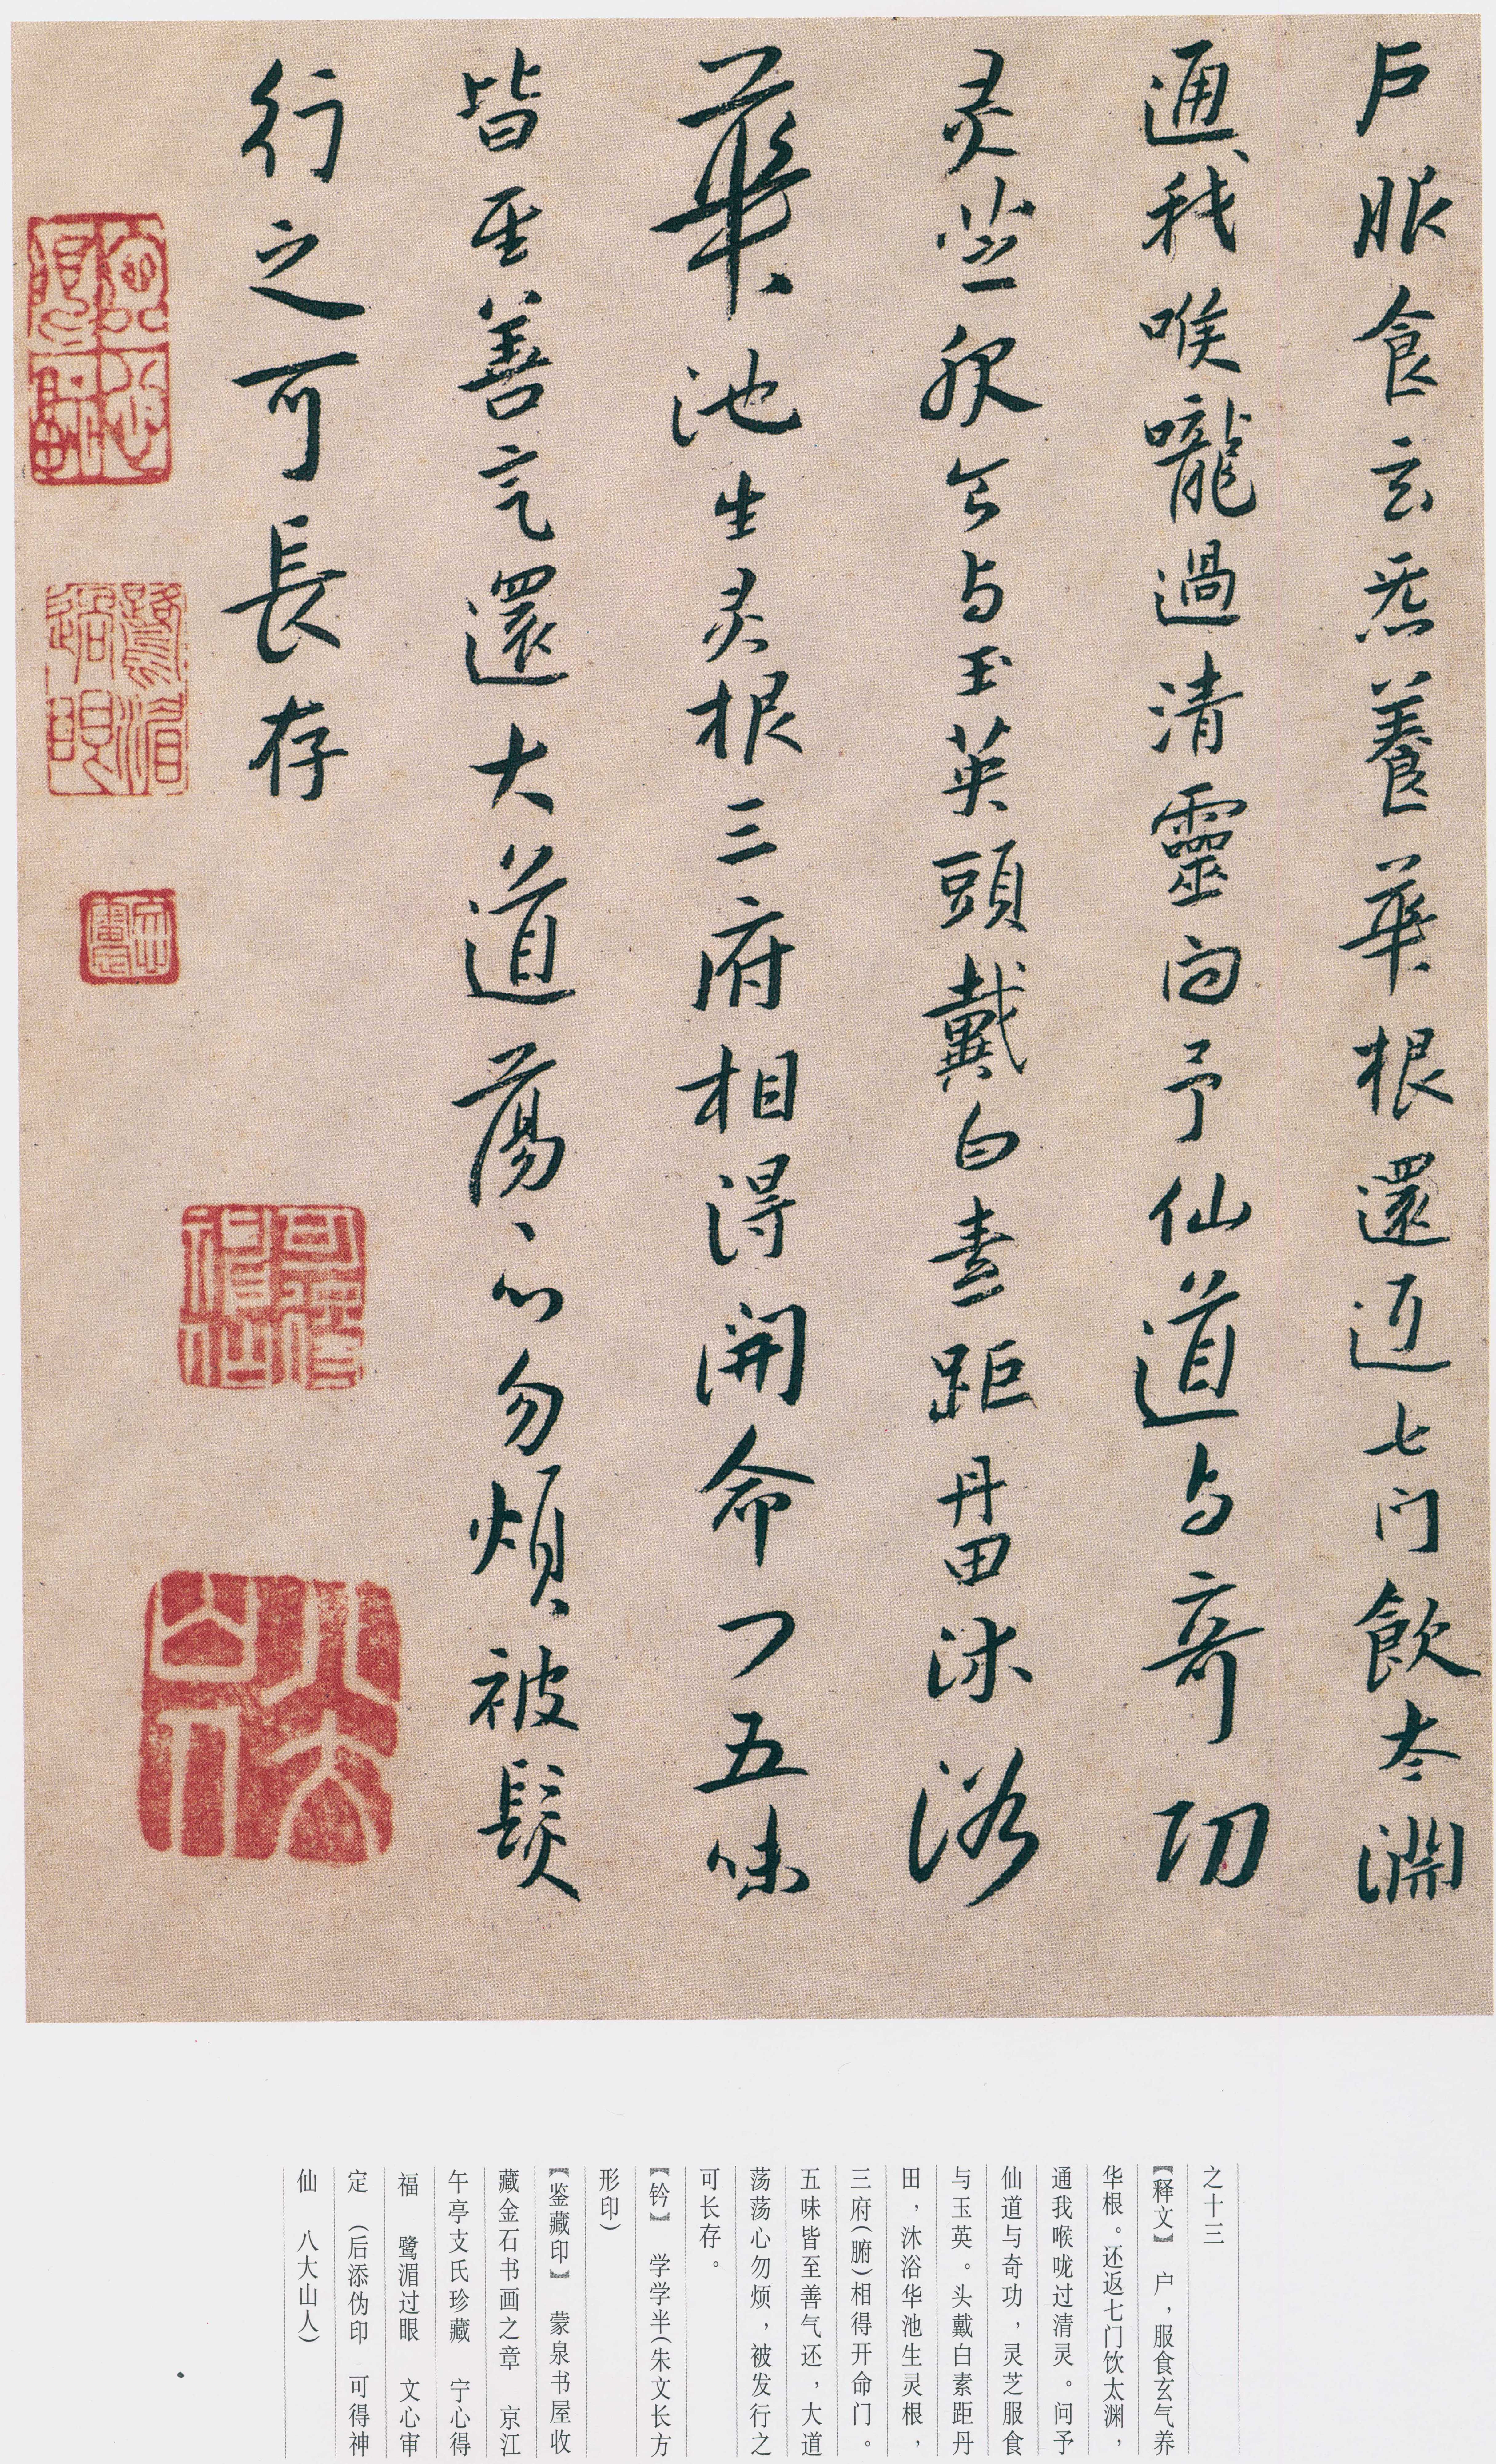 户服食玄炁養華根還返七门飲太淵
通我喉嚨過清靈问予仙道与奇功
灵芝服食与玉英頭戴白素距丹田沐浴
華池生灵根三府相得開命门五味
皆至善气還大道蕩〻心勿煩被髮
行之可長存
之十三
【释文】 户，服食玄气养
华根。还返七门饮太渊，
通我喉咙过清灵。问予
仙道与奇功，灵芝服食
与玉英。头戴白素距丹
田，沐浴华池生灵根，
三府(腑)相得开命门。
五味皆至善气还，大道
荡荡心勿烦，被发行之
可长存。
【钤】 学学半(朱文长方
形印)
【鉴藏印】 蒙泉书屋收
藏金石书画之章 京江
午亭支氏珍藏 宁心得
福 鹭湄过眼 文心审
定 (后添伪印 可得神
仙 八大山人)
鷺湄過眼
可得神仙
八大山人